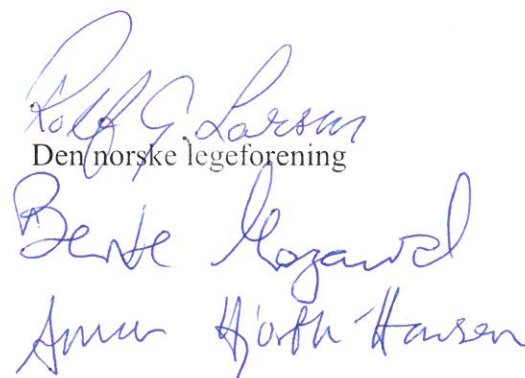 Rolf G. Larsen
Den norske legeforening
Bente
Hjorth-Hansen